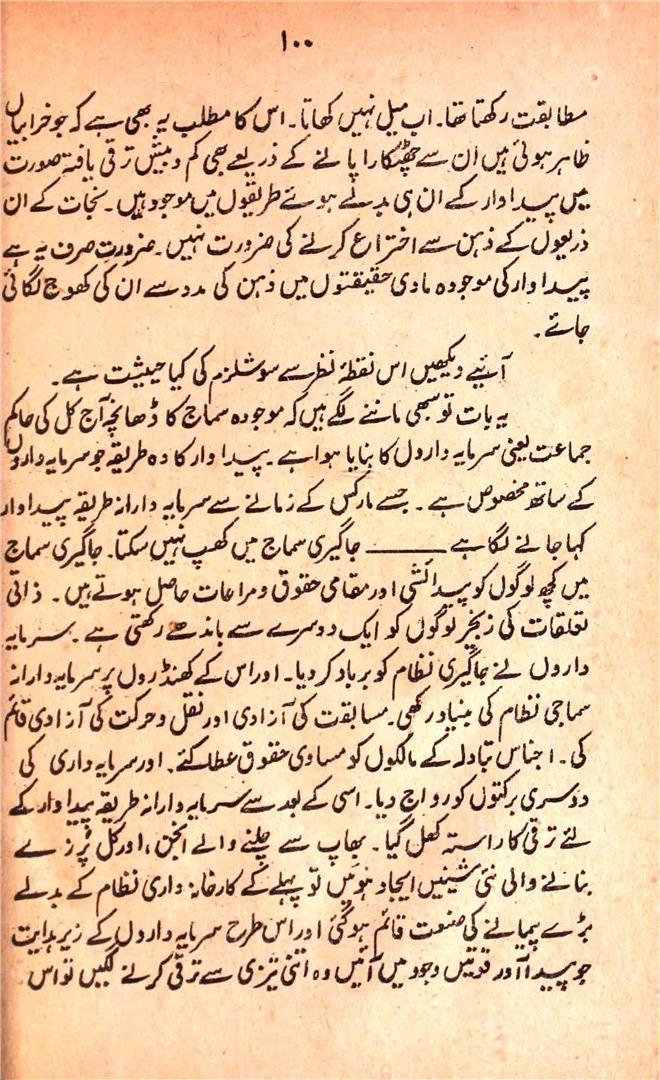 ۱۰۰
مطابقت رکھتا تھا۔ اب میل نہیں کھاتا۔ اس کا مطلب یہ بھی ہے کہ جو خرابیاں
ظاہر ہوئی ہیں ان سے چھٹکارا پانے کے ذریعے بھی کم و بیش ترقی یافتہ صورت
میں پیداوار کے ان ہی بدلے ہوئے طریقوں میں موجود ہیں۔ نجات کے ان
ذریعوں کے ذہن سے اختراع کرنے کی ضرورت نہیں۔ ضرورت صرف یہ ہے
پیداوار کی موجودہ مادی حقیقتوں میں ذہن کی مدد سے ان کی کھوج لگائی
جائے۔
آیئے دیکھیں اس نقطۂ نظر سے سوشلزم کی کیا حیثیت ہے۔
یہ بات تو سبھی ماننے لگے ہیں کہ موجودہ سماج کا ڈھانچہ آج کل کی حاکم
جماعت یعنی سرمایہ داروں کا بنایا ہوا ہے۔ پیداوار کا وہ طریقہ جو سرمایہ داروں
کے ساتھ مخصوص ہے۔ جسے مارکس کے زمانے سے سرمایہ دارانہ طریقہ پیداوار
کہا جانے لگا ہے ـــــــــ جاگیری سماج میں کھپ نہیں سکتا۔ جاگیری سماج
میں کچھ لوگوں کو پیدائشی اور مقامی حقوق و مراعات حاصل ہوتے ہیں۔ ذاتی
تعلقات کی زنجیر لوگوں کو ایک دوسرے سے باندھے رکھتی ہے۔ سرمایہ
داروں نے جاگیری نظام کو برباد کر دیا۔ اور اس کے کھنڈروں پر سرمایہ دارانہ
سماجی نظام کی بنیاد رکھی۔ مسابقت کی آزادی اور نقل و حرکت کی آزادی قائم
کی۔ اجناس تبادلہ کے مالکوں کو مساوی حقوق عطا کئے۔ اور سرمایہ داری کی
دوسری برکتوں کو رواج دیا۔ اسی کے بعد سے سرمایہ دارانہ طریقہ پیداوار کے
لئے ترقی کا راستہ کھل گیا۔ بھاپ سے چلنے والے انجن، اور کل پُرزے
بنانے والی نئی مشینیں ایجاد ہوئیں تو پہلے کے کارخانہ داری نظام کے بدلے
بڑے پیمانے کی صنعت قائم ہو گئی اور اس طرح سرمایہ داروں کے زیر ہدایت
جو پیداآور قوتیں وجود میں آئیں وہ اتنی تیزی سے ترقی کرنے لگیں تو اس